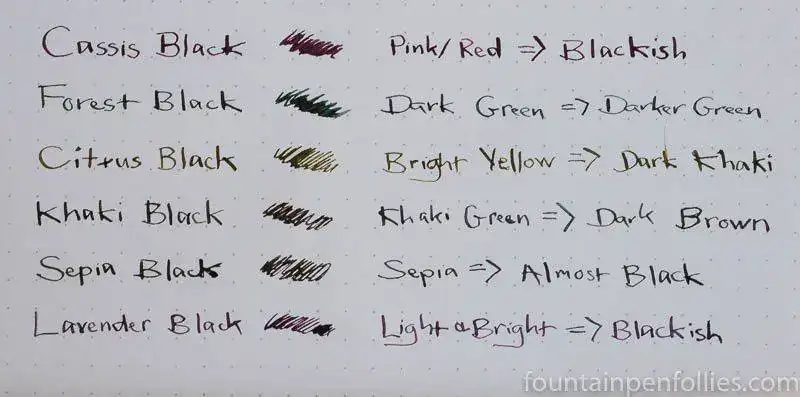 Cassis Black Pink/Red => Blackish
Forest Black Dark Green => Darker Green
Citrus Black Bright Yellow => Dark Khaki
Khaki Black Khaki Green => Dark Brown
Sepia Black Sepia => Almost Black
Lavender Black Light & Bright => Blackish
fountainpenfollies.com